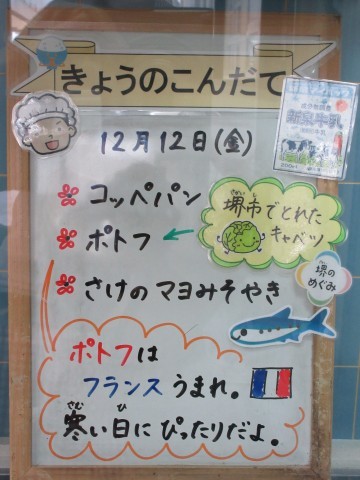 きょうのこんだて
12月12日(金)
コッペパン
ポトフ
さけのマヨみそやき
さかいし
堺市でとれた
キャベツ
さかい
堺の
めぐみ
ポトフは
フランスうまれ。
さむ ひ
寒い日にぴったりだよ。